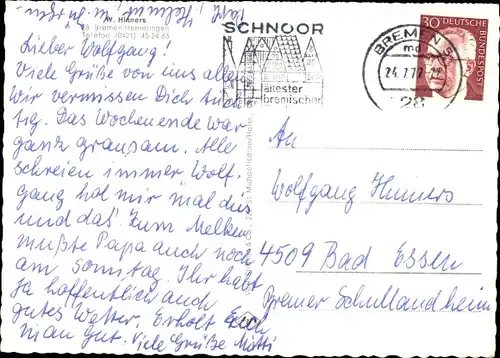 W. Hiiners
28 Bremen-Hemelingen
Telefon (0421) 45 24 65
Lieber Wolfgang!
Viele Grüße von uns allen
Wir vermissen Dich tüch
tig. Das Wochenende war
ganz grausam. Alle
schreien immer Wolf-
gang hol mir mal das
und das. Zum Melken
mußte Papa auch noch
am Sonntag. Ihr habt
ja hoffentlich auch
gutes Wetter. Erholt Euch
man gut. Viele Grüße Mutti
SCHNOOR
ältester
bremischer
BREMEN
24.7.7
28
30 DEUTSCHE
BUNDESPOST
An
Wolfgang
4509 Bad Essen
Bremer Schullandheim